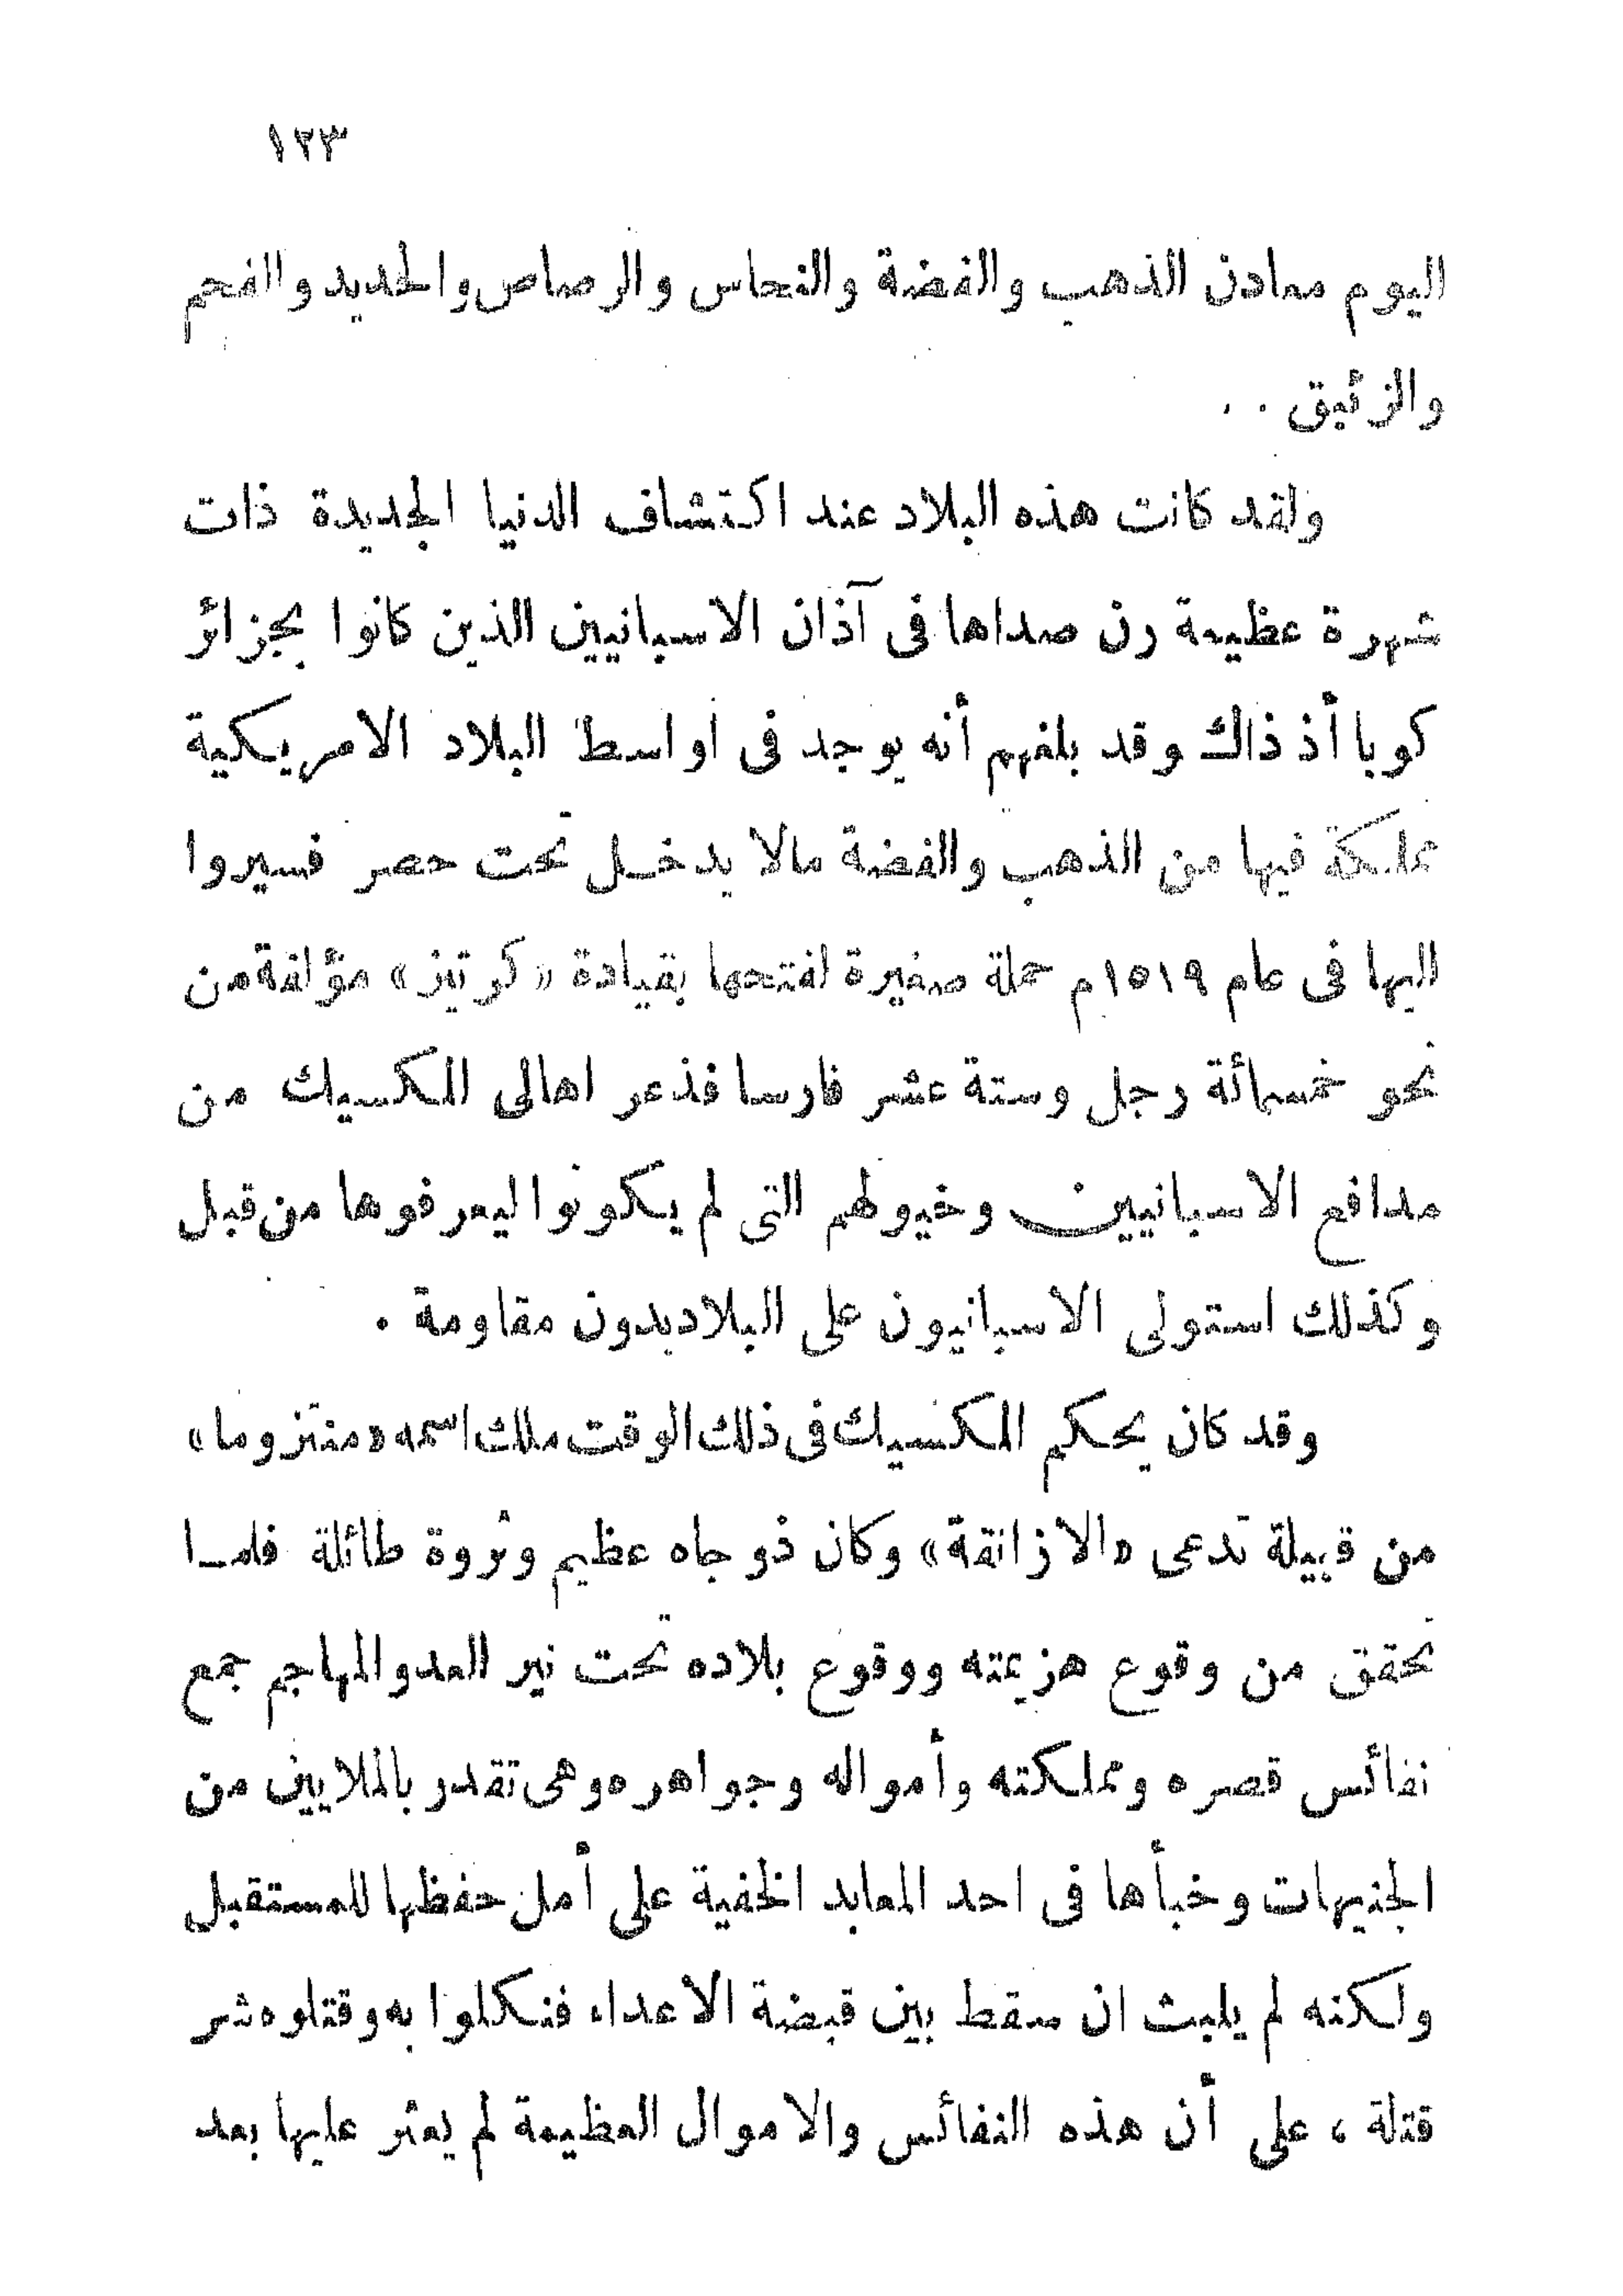 ١٢٣
اليوم معادن الذهب والفضة والنحاس والرصاص والحديد والفحم
والزئبق . .
ولقد كانت هذه البلاد عند اكتشاف الدنيا الجديدة ذات
شهرة عظيمة رن صداها فى آذان الاسبانيين الذين كانوا بجزائر
كوبا أذ ذاك وقد بلغهم أنه يوجد فى اواسط البلاد الامريكية
مملكة فيها من الذهب والفضة مالا يدخل تحت حصر فسيروا
اليها فى عام ١٥١٩م حملة صغيرة لفتحها بقيادة «كرتيز» مؤلفة من
نحو خمسمائة رجل وستة عشر فارسا فذعر اهالى المكسيك من
مدافع الاسبانيين وخيولهم التى لم يكونوا ليعرفوها من قبل
وكذلك استولى الاسبانيون على البلاد بدون مقاومة .
وقد كان يحكم المكسيك فى ذلك الوقت ملك اسمه «منتزوما»
من قبيلة تدعى «الازاتقة» وكان ذو جاه عظيم وثروة طائلة فلما
تحقق من وقوع هزيمته ووقوع بلاده تحت نير العدو المهاجم جمع
نفائس قصره ومملكته وأمواله وجواهره وهى تقدر بالملايين من
الجنيهات وخبأها فى احد المعابد الخفية على أمل حفظها للمستقبل
ولكنه لم يلبث ان سقط بين قبضة الاعداء فنكلوا به وقتلوه شر
قتلة ، على أن هذه النفائس والاموال العظيمة لم يعثر عليها بعد